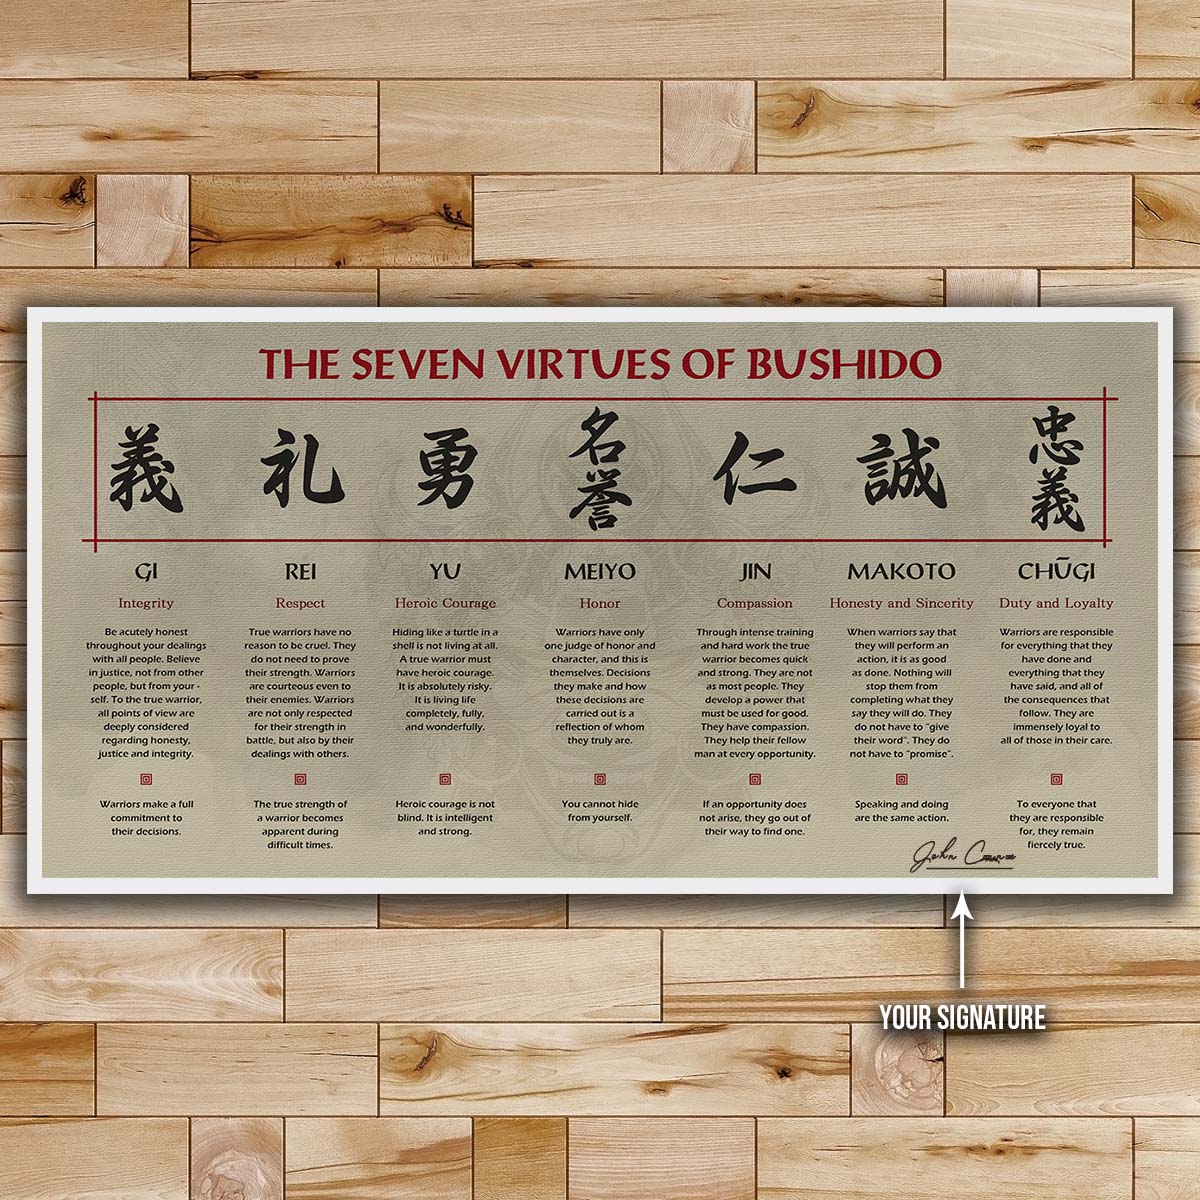 THE SEVEN VIRTUES OF BUSHIDO
義
礼
勇
名誉
仁
誠
忠義
GI
Integrity
Be acutely honest
throughout your dealings
with all people. Believe
in justice, not from other
people, but from your -
self. To the true warrior,
all points of view are
deeply considered
regarding honesty,
justice and integrity.
Warriors make a full
commitment to
their decisions.
REI
Respect
True warriors have no
reason to be cruel. They
do not need to prove
their strength. Warriors
are courteous even to
their enemies. Warriors
are not only respected
for their strength in
battle, but also by their
dealings with others.
The true strength of
a warrior becomes
apparent during
difficult times.
YU
Heroic Courage
Hiding like a turtle in a
shell is not living at all.
A true warrior must
have heroic courage.
It is absolutely risky.
It is living life
completely, fully,
and wonderfully.
Heroic courage is not
blind. It is intelligent
and strong.
MEIYO
Honor
Warriors have only
one judge of honor and
character, and this is
themselves. Decisions
they make and how
these decisions are
carried out is a
reflection of whom
they truly are.
You cannot hide
from yourself.
JIN
Compassion
Through intense training
and hard work the true
warrior becomes quick
and strong. They are not
as most people. They
develop a power that
must be used for good.
They have compassion.
They help their fellow
man at every opportunity.
If an opportunity does
not arise, they go out of
their way to find one.
MAKOTO
Honesty and Sincerity
When warriors say that
they will perform an
action, it is as good
as done. Nothing will
stop them from
completing what they
say they will do. They
do not have to "give
their word". They do
not have to "promise".
Speaking and doing
are the same action.
CHŪGI
Duty and Loyalty
Warriors are responsible
for everything that they
have done and
everything that they
have said, and all of
the consequences that
follow. They are
immensely loyal to
all of those in their care.
To everyone that
they are responsible
for, they remain
fiercely true.
John
YOUR SIGNATURE